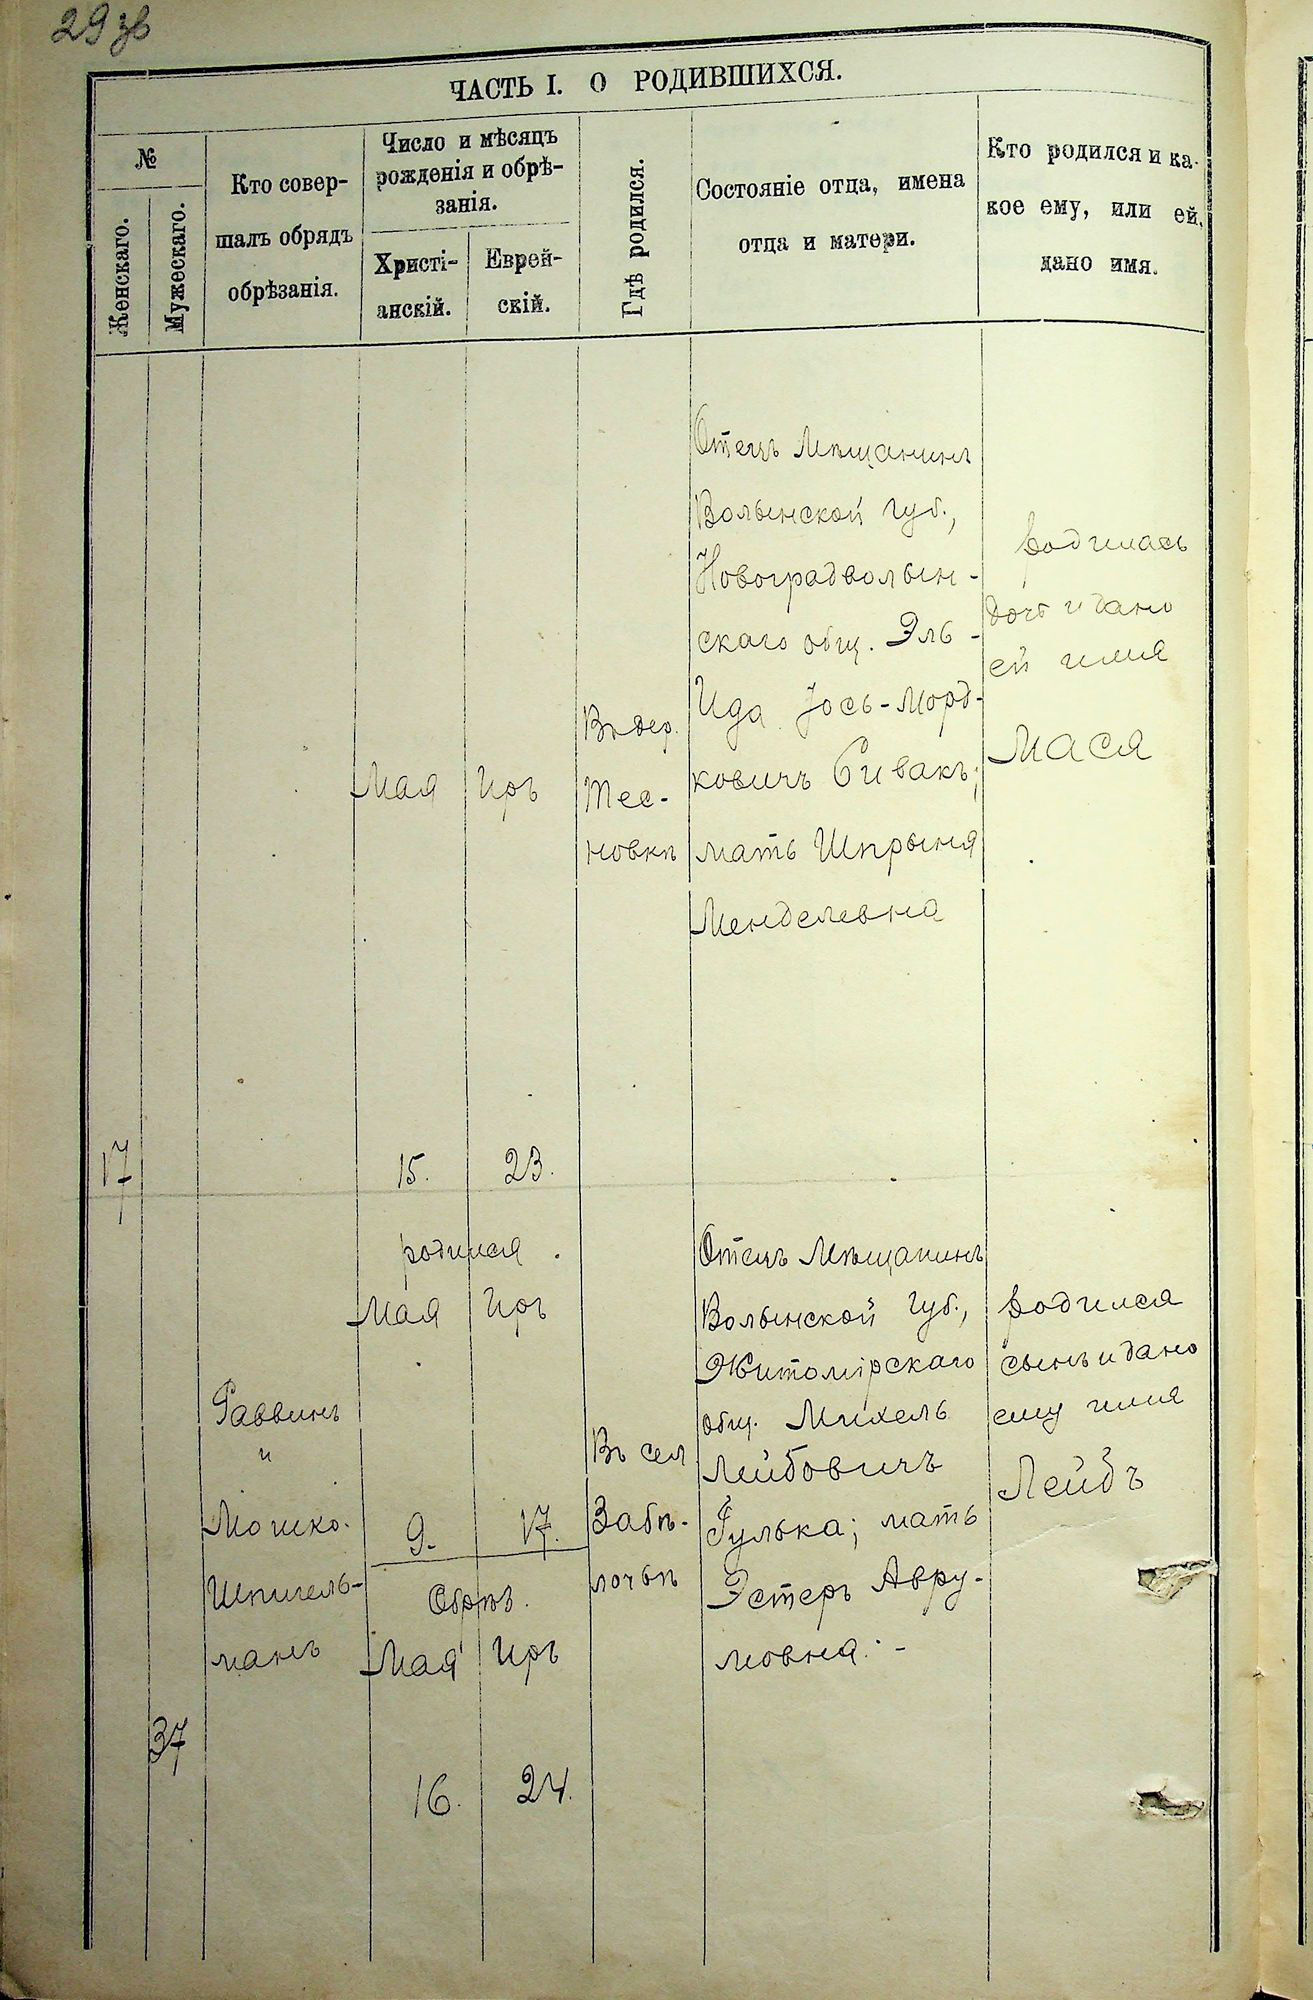 29 зв
ЧАСТЬ I. О РОДИВШИХСЯ.
№
Женскаго.
Мужескаго.
Кто совер-
шалъ обрядъ
обрѣзанія.
Число и мѣсяцъ
рожденія и обрѣ-
занія.
Христі-
анскій.
Еврей-
скій.
Гдѣ родился.
Состояніе отца, имена
отца и матери.
Кто родился и ка-
кое ему, или ей,
дано имя.
17
Мая
15.
Иръ
23.
Въ дер.
Тес-
новкѣ
Отецъ Мѣщанинъ
Волынской губ.,
Новоградволын-
скаго общ. Эль-
Ида Іось-Морд-
ковичъ Сивакъ;
мать Шпрыня
Менделевна
родилась
дочь и дано
ей имя
Мася
37
Раввинъ
и
Мошко.
Шпигель-
манъ
родился.
Мая
Иръ
9.
17.
Обрѣз.
Мая
Иръ
16.
24.
Въ сел
Забѣ-
лочьѣ
Отецъ Мѣщанинъ
Волынской губ.,
Житомірскаго
общ. Михель
Лейбовичъ
Гулька; мать
Эстеръ Авру-
мовна. -
родился
сынъ и дано
ему имя
Лейбъ